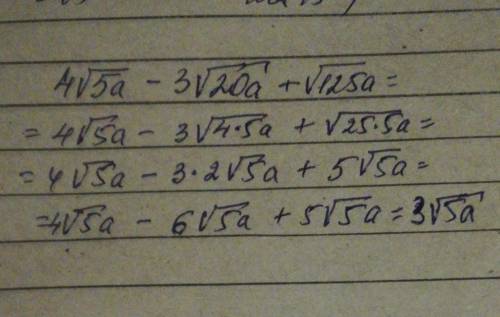 4√5a - 3√20a + √125a =
= 4√5a - 3√4·5a + √25·5a =
= 4√5a - 3·2√5a + 5√5a =
= 4√5a - 6√5a + 5√5a = 3√5a